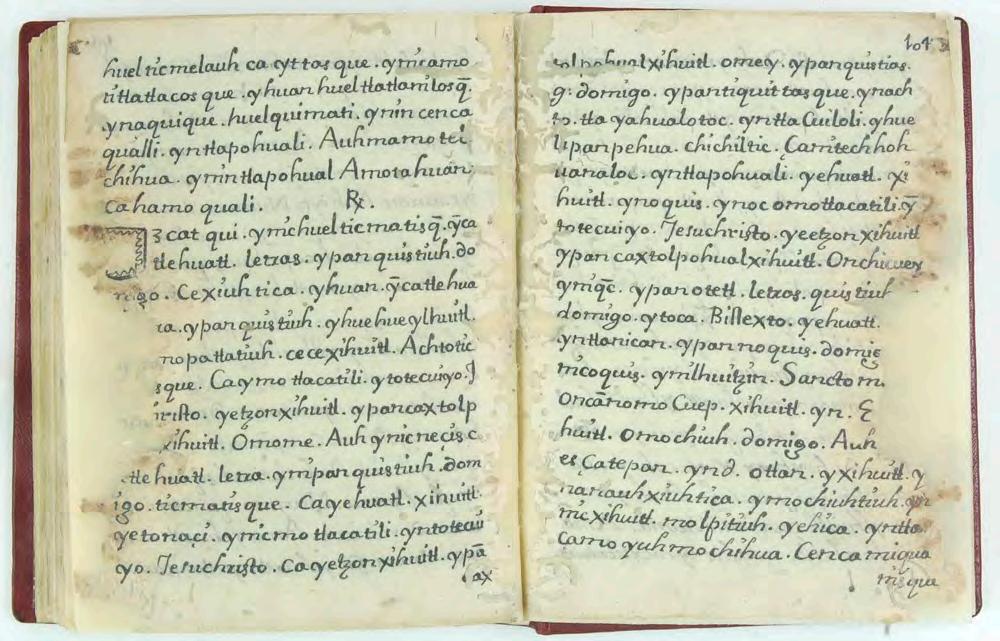 huel ticmelauh ca yttas que. ynic amo
titlatlacos que. yhuan huel tlatlanilosq̄.
ynaquique. huel quimati. ynin cenca
qualli. yntlapohuali. Auh mamo tel
chihua. ynin tlapohual Amotahuan,
Ca hamo quali. R̃.
J3 cat qui. ynic huel ticmatisq̄. ȳca
tlehuatl. letras. ypan quistiuh. do
migo. Ce xiuhtica. yhuan. ȳcatlehua
ca. ypan quistiuh. yhuehueylhuitl.
mopatlatiuh. cecexihuitl. Achtotic
sque. Ca ynmo tlacatili. ytotecuiyo. J
risto. yetzonxihuitl. ypancaxtolp
xihuitl. Omome. Auh ynicnecis c
tlehuatl. letra. ynipan quistiuh. dom
igo. ticmatisque. Ca yehuatl. xihuitl.
ye tonaci. ynicmo tlacatili. yntotecui
yo. Jesuchristo. Ca yetzonxihuitl. ypā
ax
104
tolpohualxihuitl. omey. ypanquistias.
g: domigo. ypan tiquittasque. ynach
to. tlayahualotoc. yntlaCuiloli. yhue
lipan pehua. chichiltic. Canitech hoh
uanaloc. yntlapohuali. yehuatl. xi
huitl. ynoquis. ynoc omotlacatili. ȳ
totecuiyo. Jesuchristo. yeetzonxihuitl
ypan caxtolpohualxihuitl. Onchicuey
ynīq̄c. ypan otetl. letras. quistiuh
domigo. ytoca. Bissexto. yehuatl.
yntlanican. ypan noquis. domig
nicoquis. ynilhuitzin. Sancto m.
Oncānomo Cuep. xihuitl. yn. E
huitl. Omochiuh. domigo. Auh
es Catepan. yn d. otlan. yxihuitl. y
nanauhxiuhtica. ymochiuhtiuh. yn
nic xihuitl. molpitiuh. yehica. yntla
camo yuhmochihua. Cenca miqua
nisque